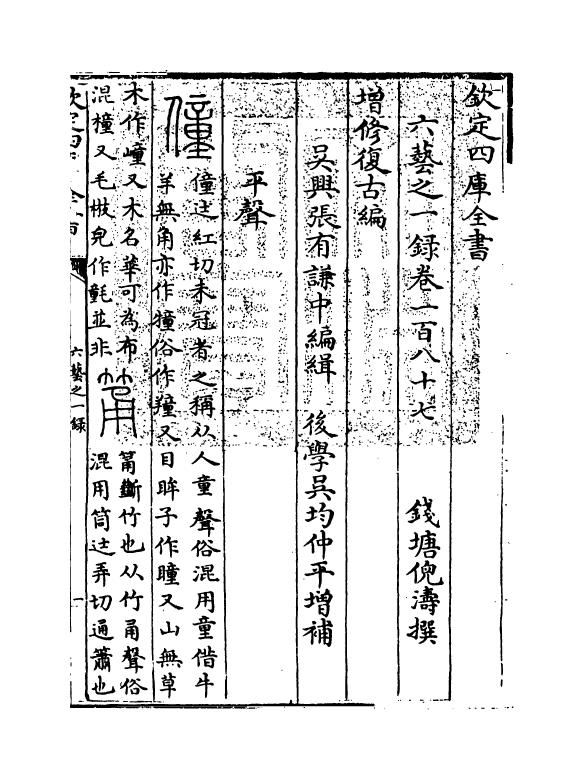 欽定四庫全書
六藝之一録卷一百八十七
錢塘倪濤撰
增修復古編
吳興張有謙中編緝 後學吳均仲平增補
平聲
僮 僮迬紅切未冠者之稱从人童聲俗混用童偕牛
羊無角亦作犝俗作羵又目眸子作瞳又山無草
木作㠉又木名華可為布混橦又毛㪚皃作氃並非
筩 筩斷竹也从竹甬聲俗混用筒迬弄切通簫也
六藝之一録
一